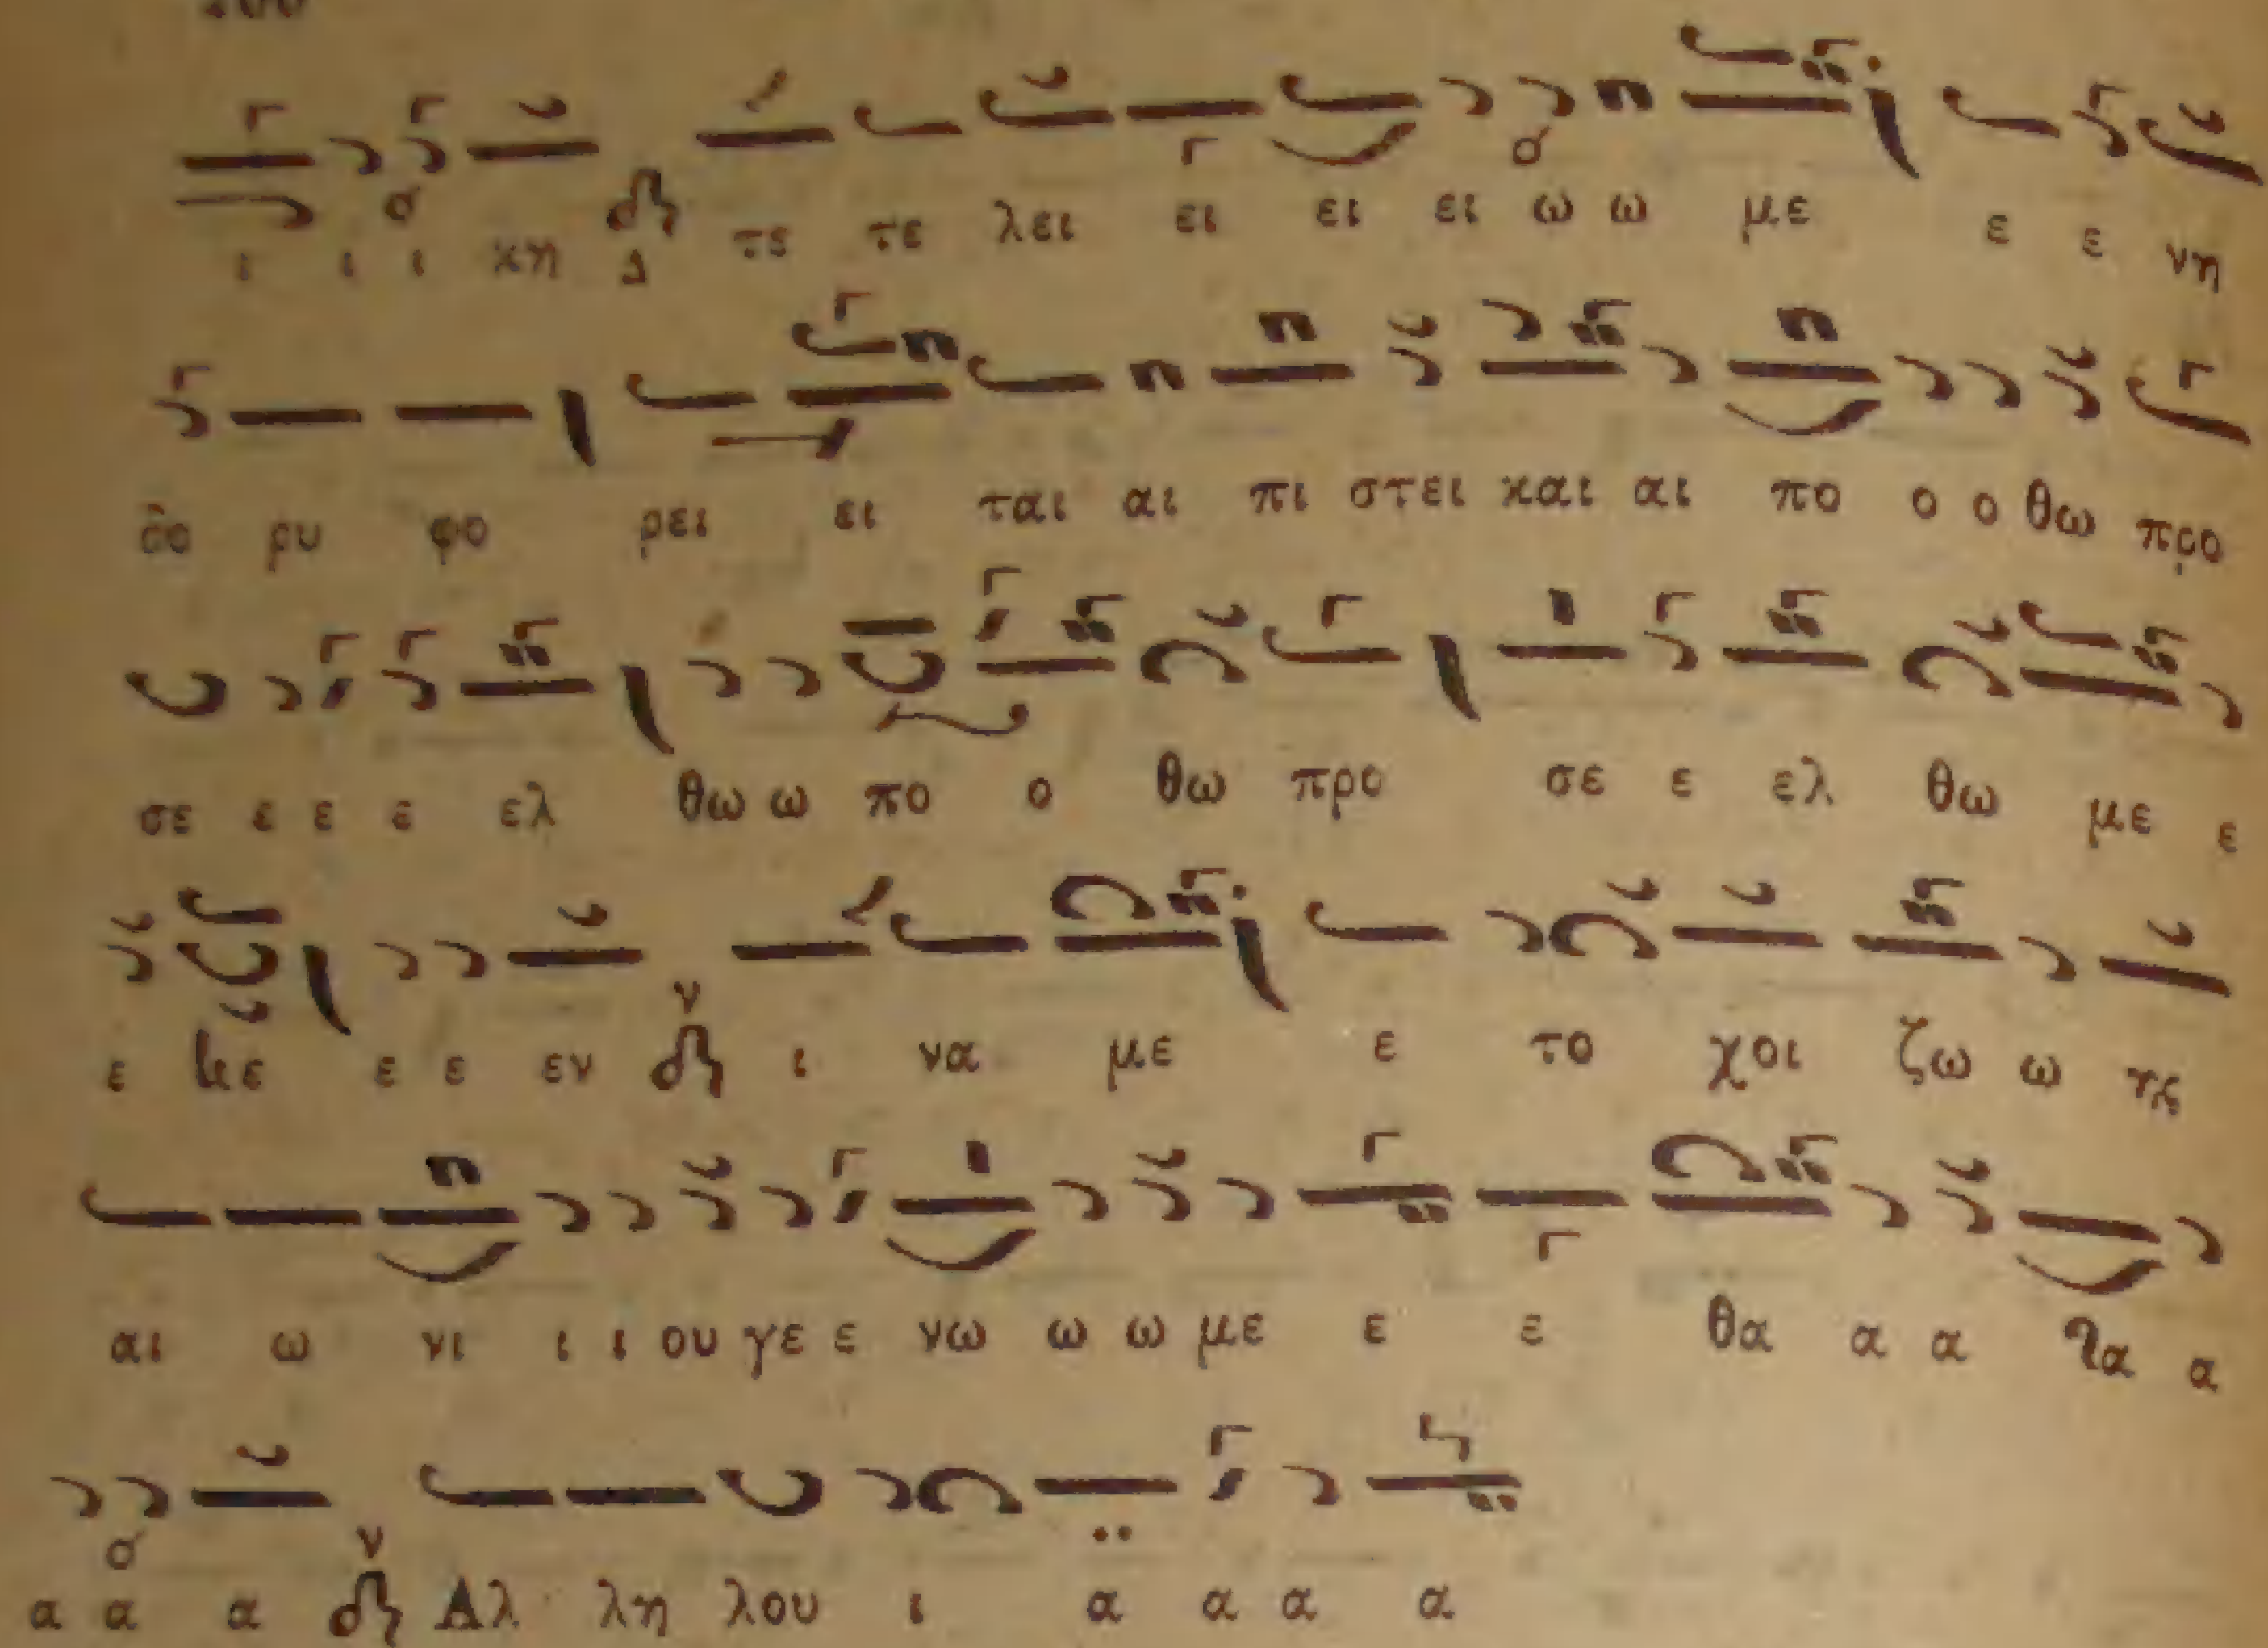 ι ι ι κη Δ τε τε λει ει ει ει ω ω με ε ε νη
δο ρυ φο ρει ει ται αι πι στει και αι πο ο ο θω προ
σε ε ε ε ελ θω ω πο ο θω προ σε ε ελ θω με ε
ε ε ε εν ν ι να με ε το χοι ζω ω ης
αι ω νι ι ι ου γε ε νω ω ω με ε ε θα α α α
α α α ν Αλ λη λου ι α α α α